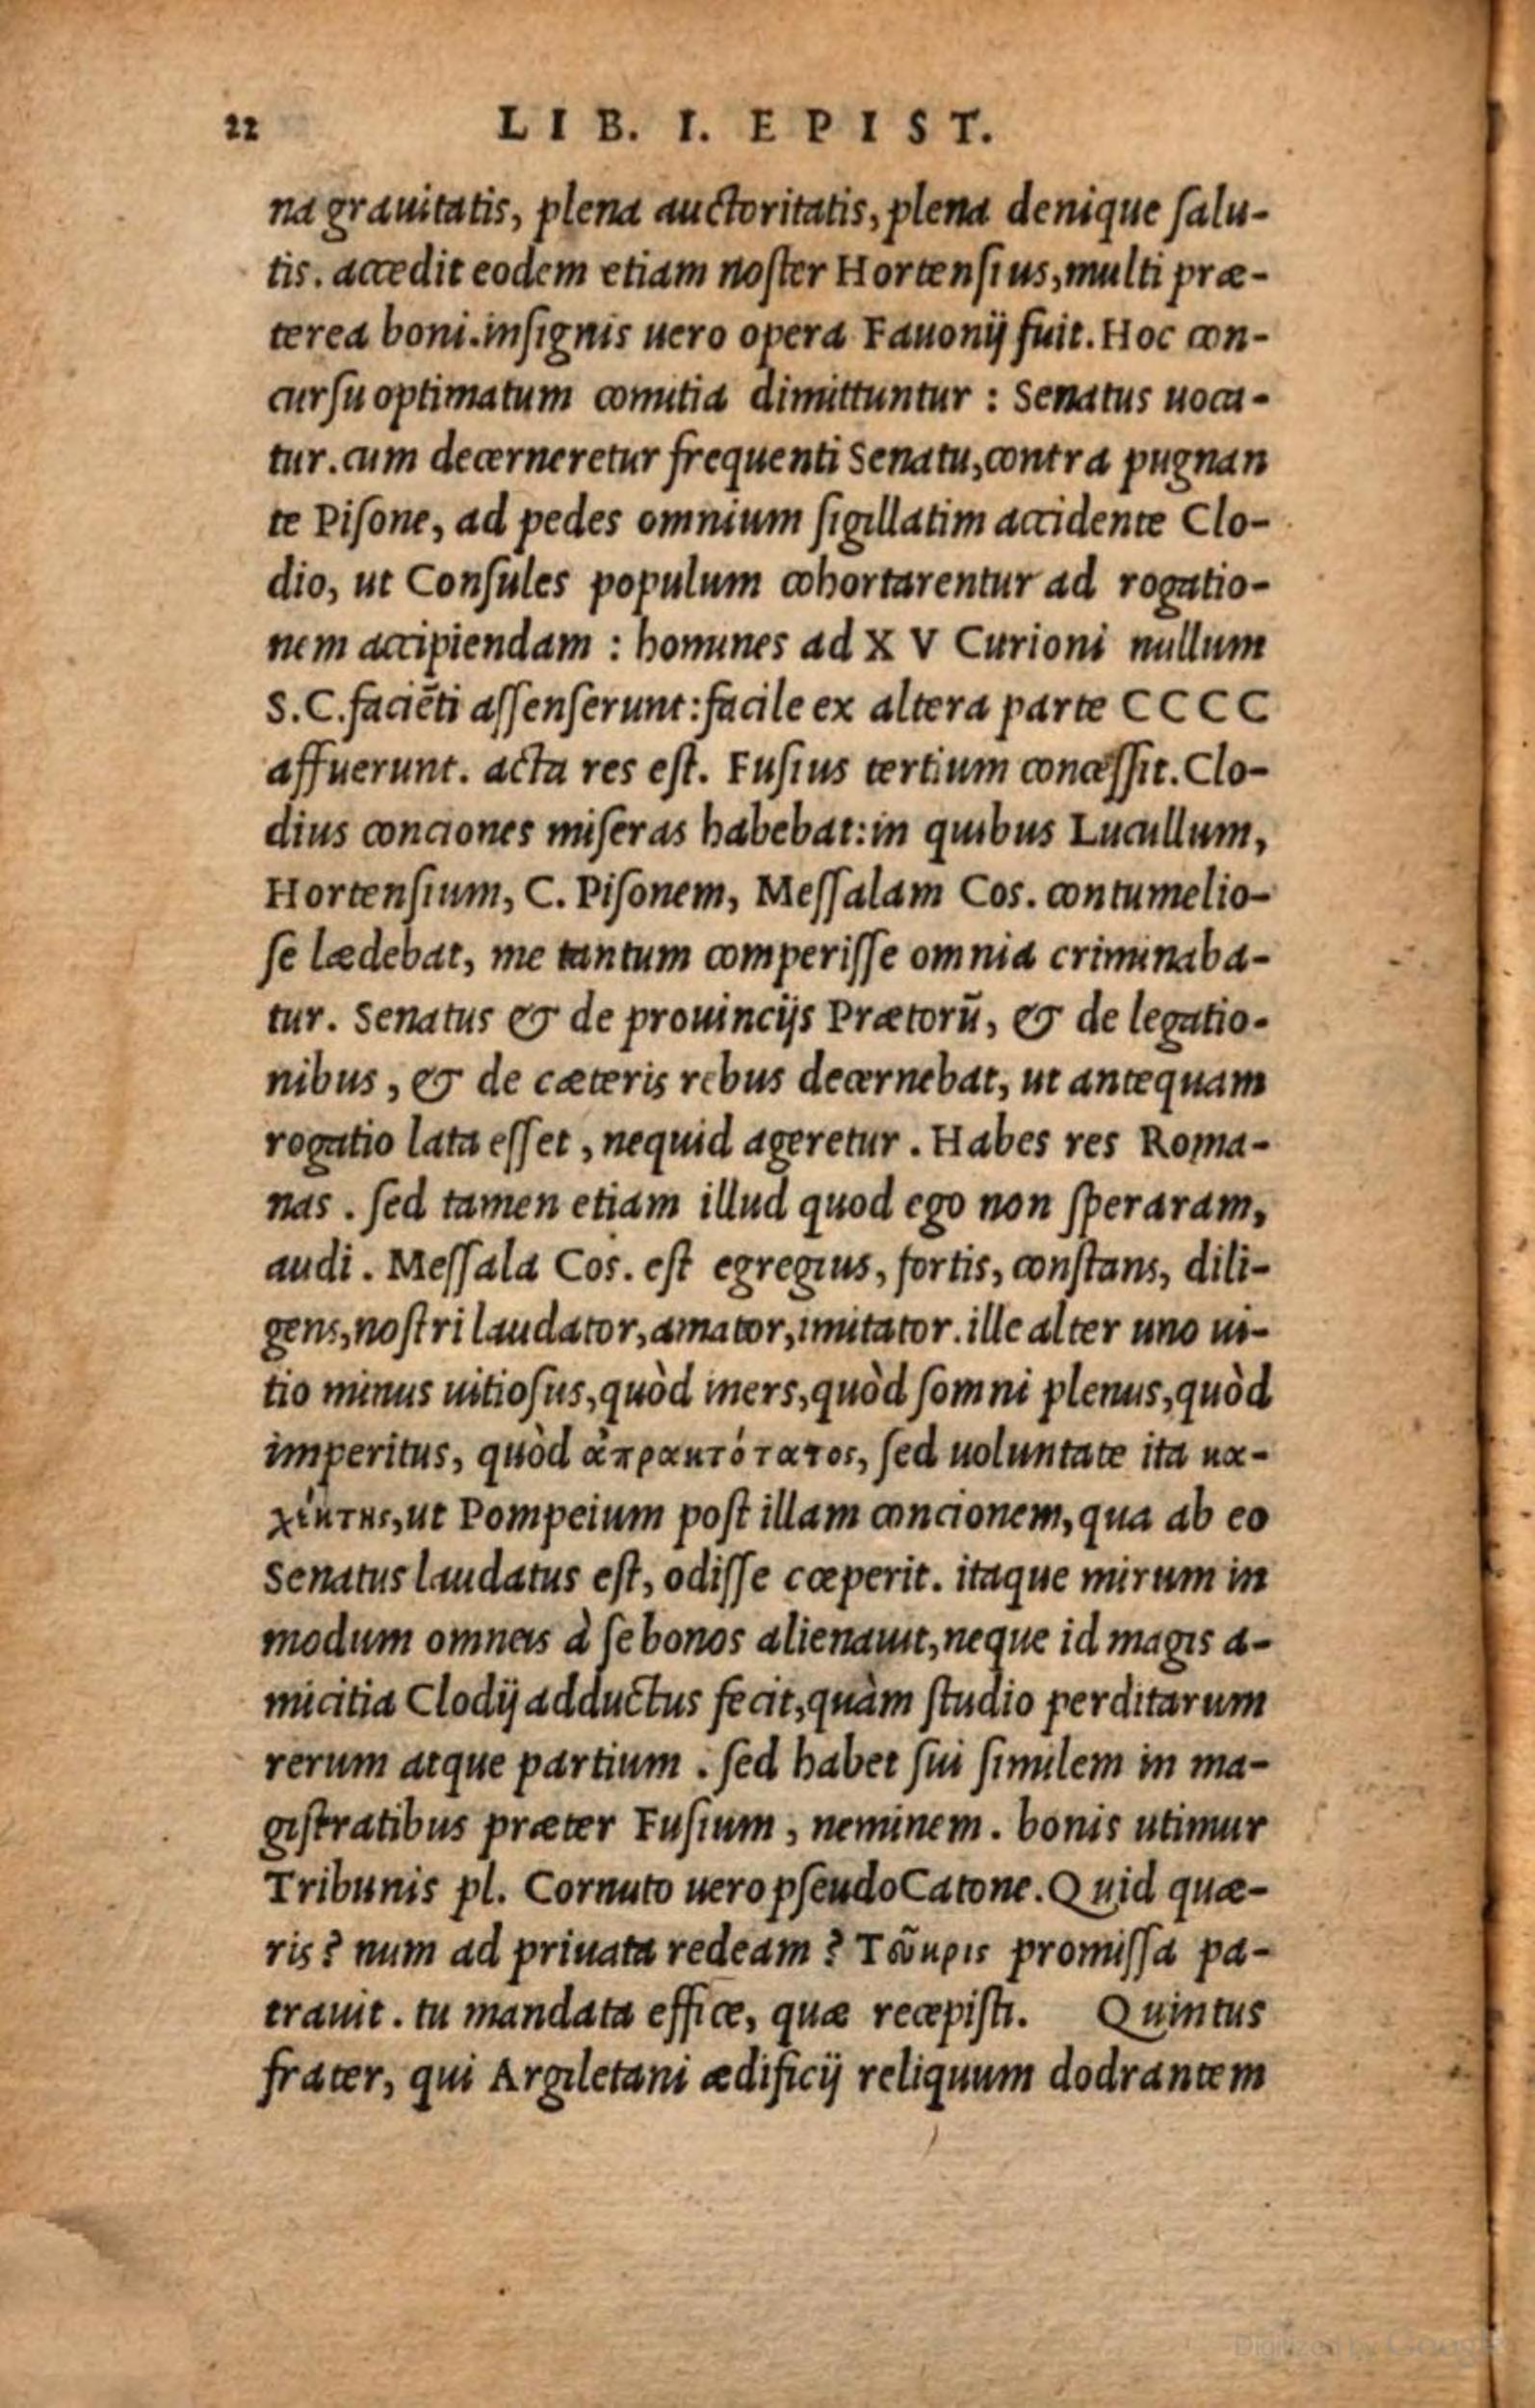 22 LIB. I. EPIST.
na grauitatis, plena auctoritatis, plena denique salu-
tis. accedit eodem etiam noster Hortensius, multi præ-
terea boni. insignis uero opera Fauonij fuit. Hoc con-
cursu optimatum comitia dimittuntur : Senatus uoca-
tur. cum decerneretur frequenti Senatu, contra pugnan
te Pisone, ad pedes omnium sigillatim accidente Clo-
dio, ut Consules populum cohortarentur ad rogatio-
nem accipiendam : homines ad X V Curioni nullum
S. C. faciēti assenserunt: facile ex altera parte CCCC
affuerunt. acta res est. Fusius tertium concessit. Clo-
dius conciones miseras habebat: in quibus Lucullum,
Hortensium, C. Pisonem, Messalam Cos. contumelio-
se lædebat, me tantum comperisse omnia criminaba-
tur. Senatus & de prouincijs Prætorū, & de legatio-
nibus, & de cæteris rebus decernebat, ut antequam
rogatio lata esset, nequid ageretur. Habes res Roma-
nas. sed tamen etiam illud quod ego non speraram,
audi. Messala Cos. est egregius, fortis, constans, dili-
gens, nostri laudator, amator, imitator. ille alter uno ui-
tio minus uitiosus, quòd iners, quòd somni plenus, quòd
imperitus, quòd ἀπρακτότατος, sed uoluntate ita κα-
χέκτης, ut Pompeium post illam concionem, qua ab eo
Senatus laudatus est, odisse cœperit. itaque mirum in
modum omneis à se bonos alienauit, neque id magis a-
micitia Clodij adductus fecit, quàm studio perditarum
rerum atque partium. sed habet sui similem in ma-
gistratibus præter Fusium, neminem. bonis utimur
Tribunis pl. Cornuto uero pseudoCatone. Quid quæ-
ris? num ad priuata redeam? Τεῦκρις promissa pa-
trauit. tu mandata effice, quæ recepisti. Quintus
frater, qui Argiletani ædificij reliquum dodrantem